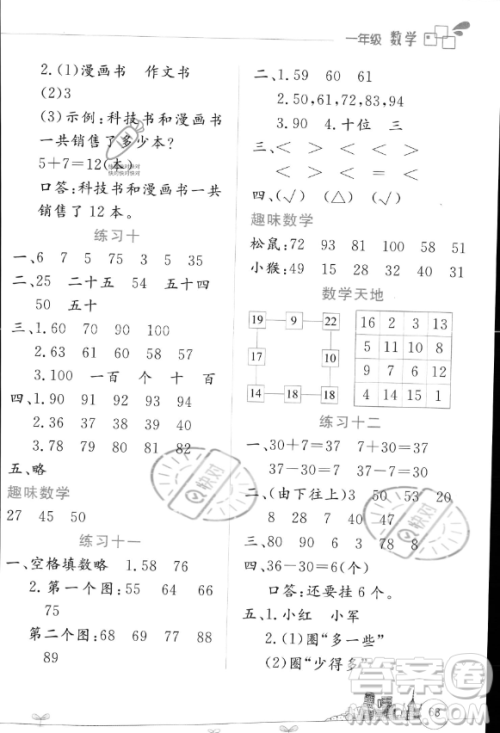 一年级 数学
2.(1)漫画书 作文书
(2)3
(3)示例:科技书和漫画书
一共销售了多少本?
5+7=12(本)
口答:科技书和漫画书一共
销售了 12 本。
练习十
一、6 7 5 75 3 5 35
二、25 二十五 54 五十四
50 五十
三、1.60 70 90 100
2.63 61 60 59 58
3.100 一百 个 十 百
四、1.90 91 92 94 96
2.36 37 38 39 40
3.78 79 80 81 82
五、略
趣味数学
27 45 50
练习十一
一、空格填数略 1.58 76
2.第一个图:55 64 66
75
第二个图:66 68 77 88
89
二、1.59 60 61
2.50,61,72,83,94
3.90 4.十位 三
三、< < < <
> < = =
四、(√) (△) (√)
趣味数学
松鼠:72 93 81 100 58 51
小猴:49 15 28 32 40 31
数学天地
19 9 22
17 10
14 18 18
16 2 3 13
5 11 10 8
9 7 6 12
4 14 15 1
练习十二
一、30+7=37 7+30=37
37-30=7 37-7=30
二、(由下往上)3 50 53 5
8 28 7 40 47
三、80 60 90 3 78 8
四、36-30=6(个)
口答:还要挂 6 个。
五、1.小红 小军
2.(1)圈“多一些”
(2)圈“少得多”
快对
快对
答案圈
68